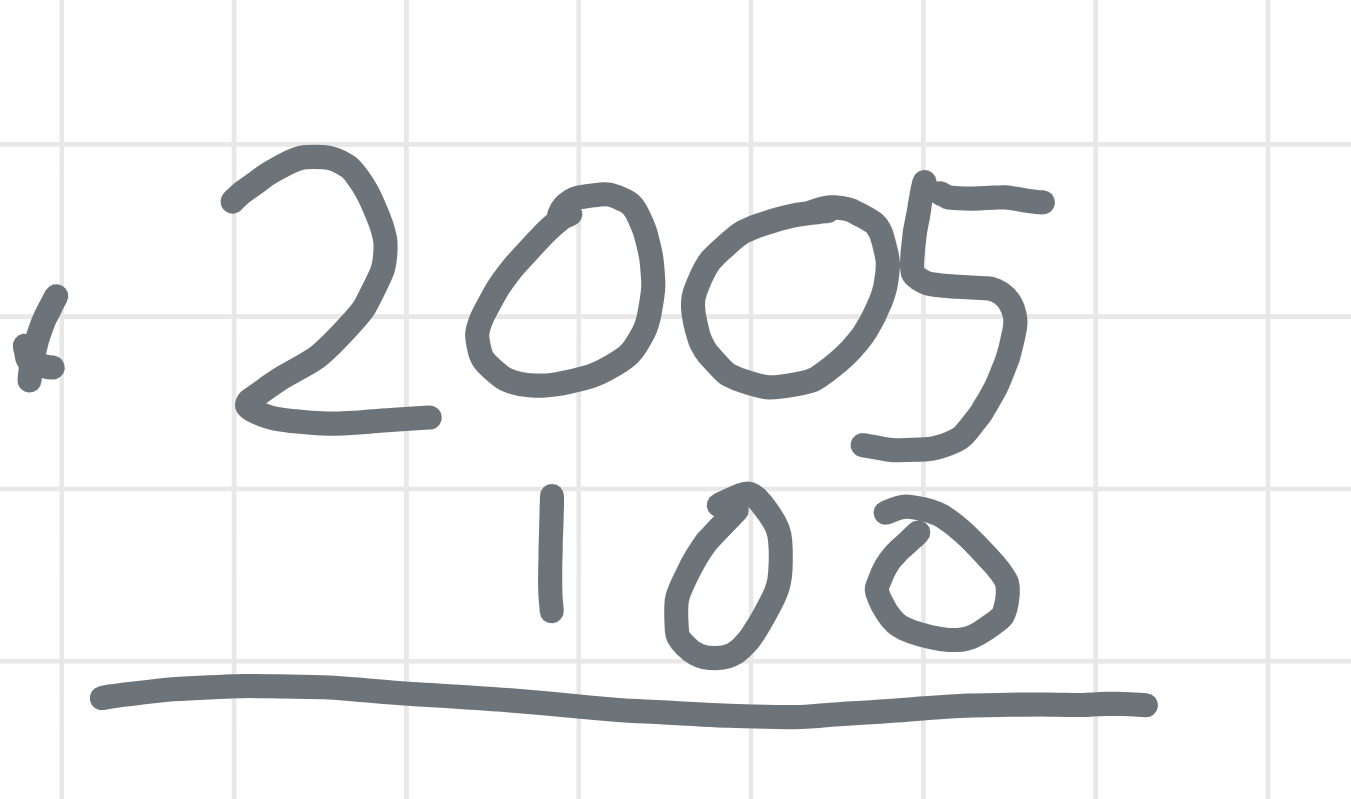 2005
100